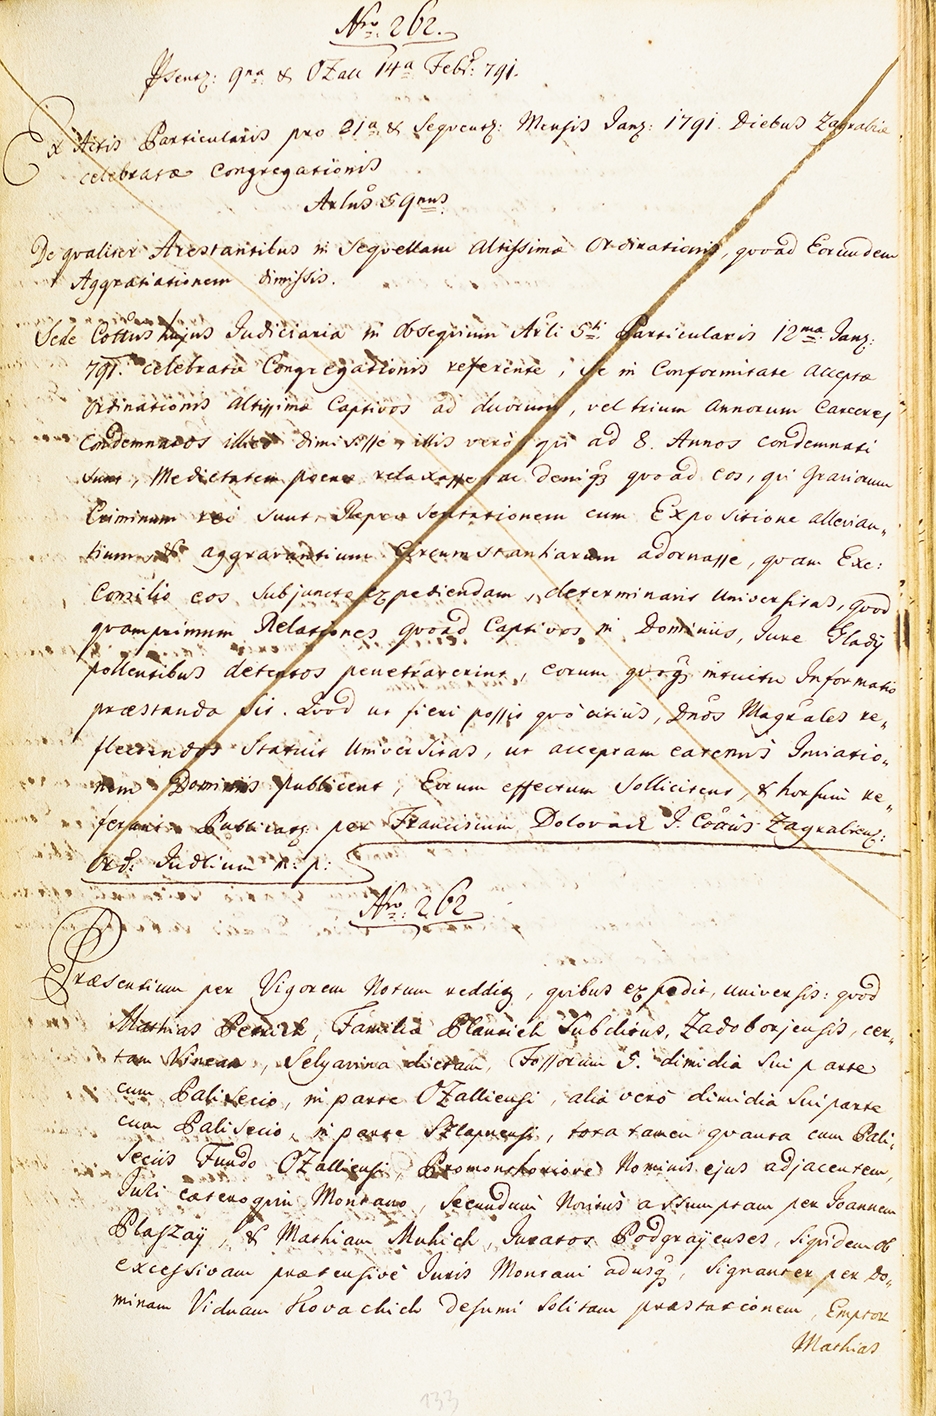 Nro. 262.
Psentz: 9na & Ozall 14a Febr: 791.
Ex Actis Particularis pro 21a & Seqventz: Mensis Janz: 1791. Diebus Zagrabiæ
celebratæ Congregationis
Arlus 59nus
De qvaliter Arestantibus in Seqvellam Altissimæ Ordinationis, qvoad Eorundem
Aggratiationem dimissis.
Sede Cottus hujus Judiciaria in obseqvium Arli 5ti Particularis 12ma Janz:
791. celebratæ Congregationis referente, se in Conformitate acceptæ
ordinationis Altissimæ Captivos ad duorum, vel trium Annorum Carceres
Condemnatos illico dimisisse, illis verò qvi ad 8. Annos condemnati
sunt, Medietatem poenæ relaxasse, ac deniq quoad eos, qvi Graviorum
Criminum rei sunt, Repræsentationem cum Expositione allevian-
tium & aggravantium Circumstantiarum adornasse, qvam Exc:
Consilio eos subjuncte expediendam, determinavit Universitas, qvod
qvamprimum Relationes qvoad Captivos in Dominiis, Jure Gladÿ
pollentibus detentos penetraverint, eorum qvoq intuitu Informatio
præstanda sit. Qvod ut fieri possit qvò citiùs, Dnos Magrales re-
flectendos Statuit Universitas, ut acceptam eatenus Inviatio-
nem Dominiis publicent, Eorum effectum sollicitent, & horsum re-
ferant. Publicatz per Franciscum Dolovacz I. Coaus Zagrabiens:
Ord: Judlium m: p:
Nro. 262
Præsentium per Vigorem Notum redditz, qvibus expedit, universis: qvod
Mathias Petrich, Familiæ Planich Subditus, Zadoborjensis, cer-
tam Vineam, Selyanina dictam, Fossorum 5. dimidia sui parte
cum Palisecio, in parte Ozalliensi, alia verò dimidia sui parte
cum Palisecio, in parte Szlapnensi, tota tamen qvanta cum Pali-
seciis Fundo Ozalliensi, Promonthoriove Nominis ejus adjacentem,
Juri cæteroqvin Montano, secundum Noritus assumptam per Joannem
Plaszaÿ, & Mathiam Muhich, Juratos Podgrajenses, siqvidem ob
excessivam prætensivè Juris Montani adusq, signanter per Do-
minam Viduam Kovachich desumi solitam præstationem, Emptor
Mathias
133